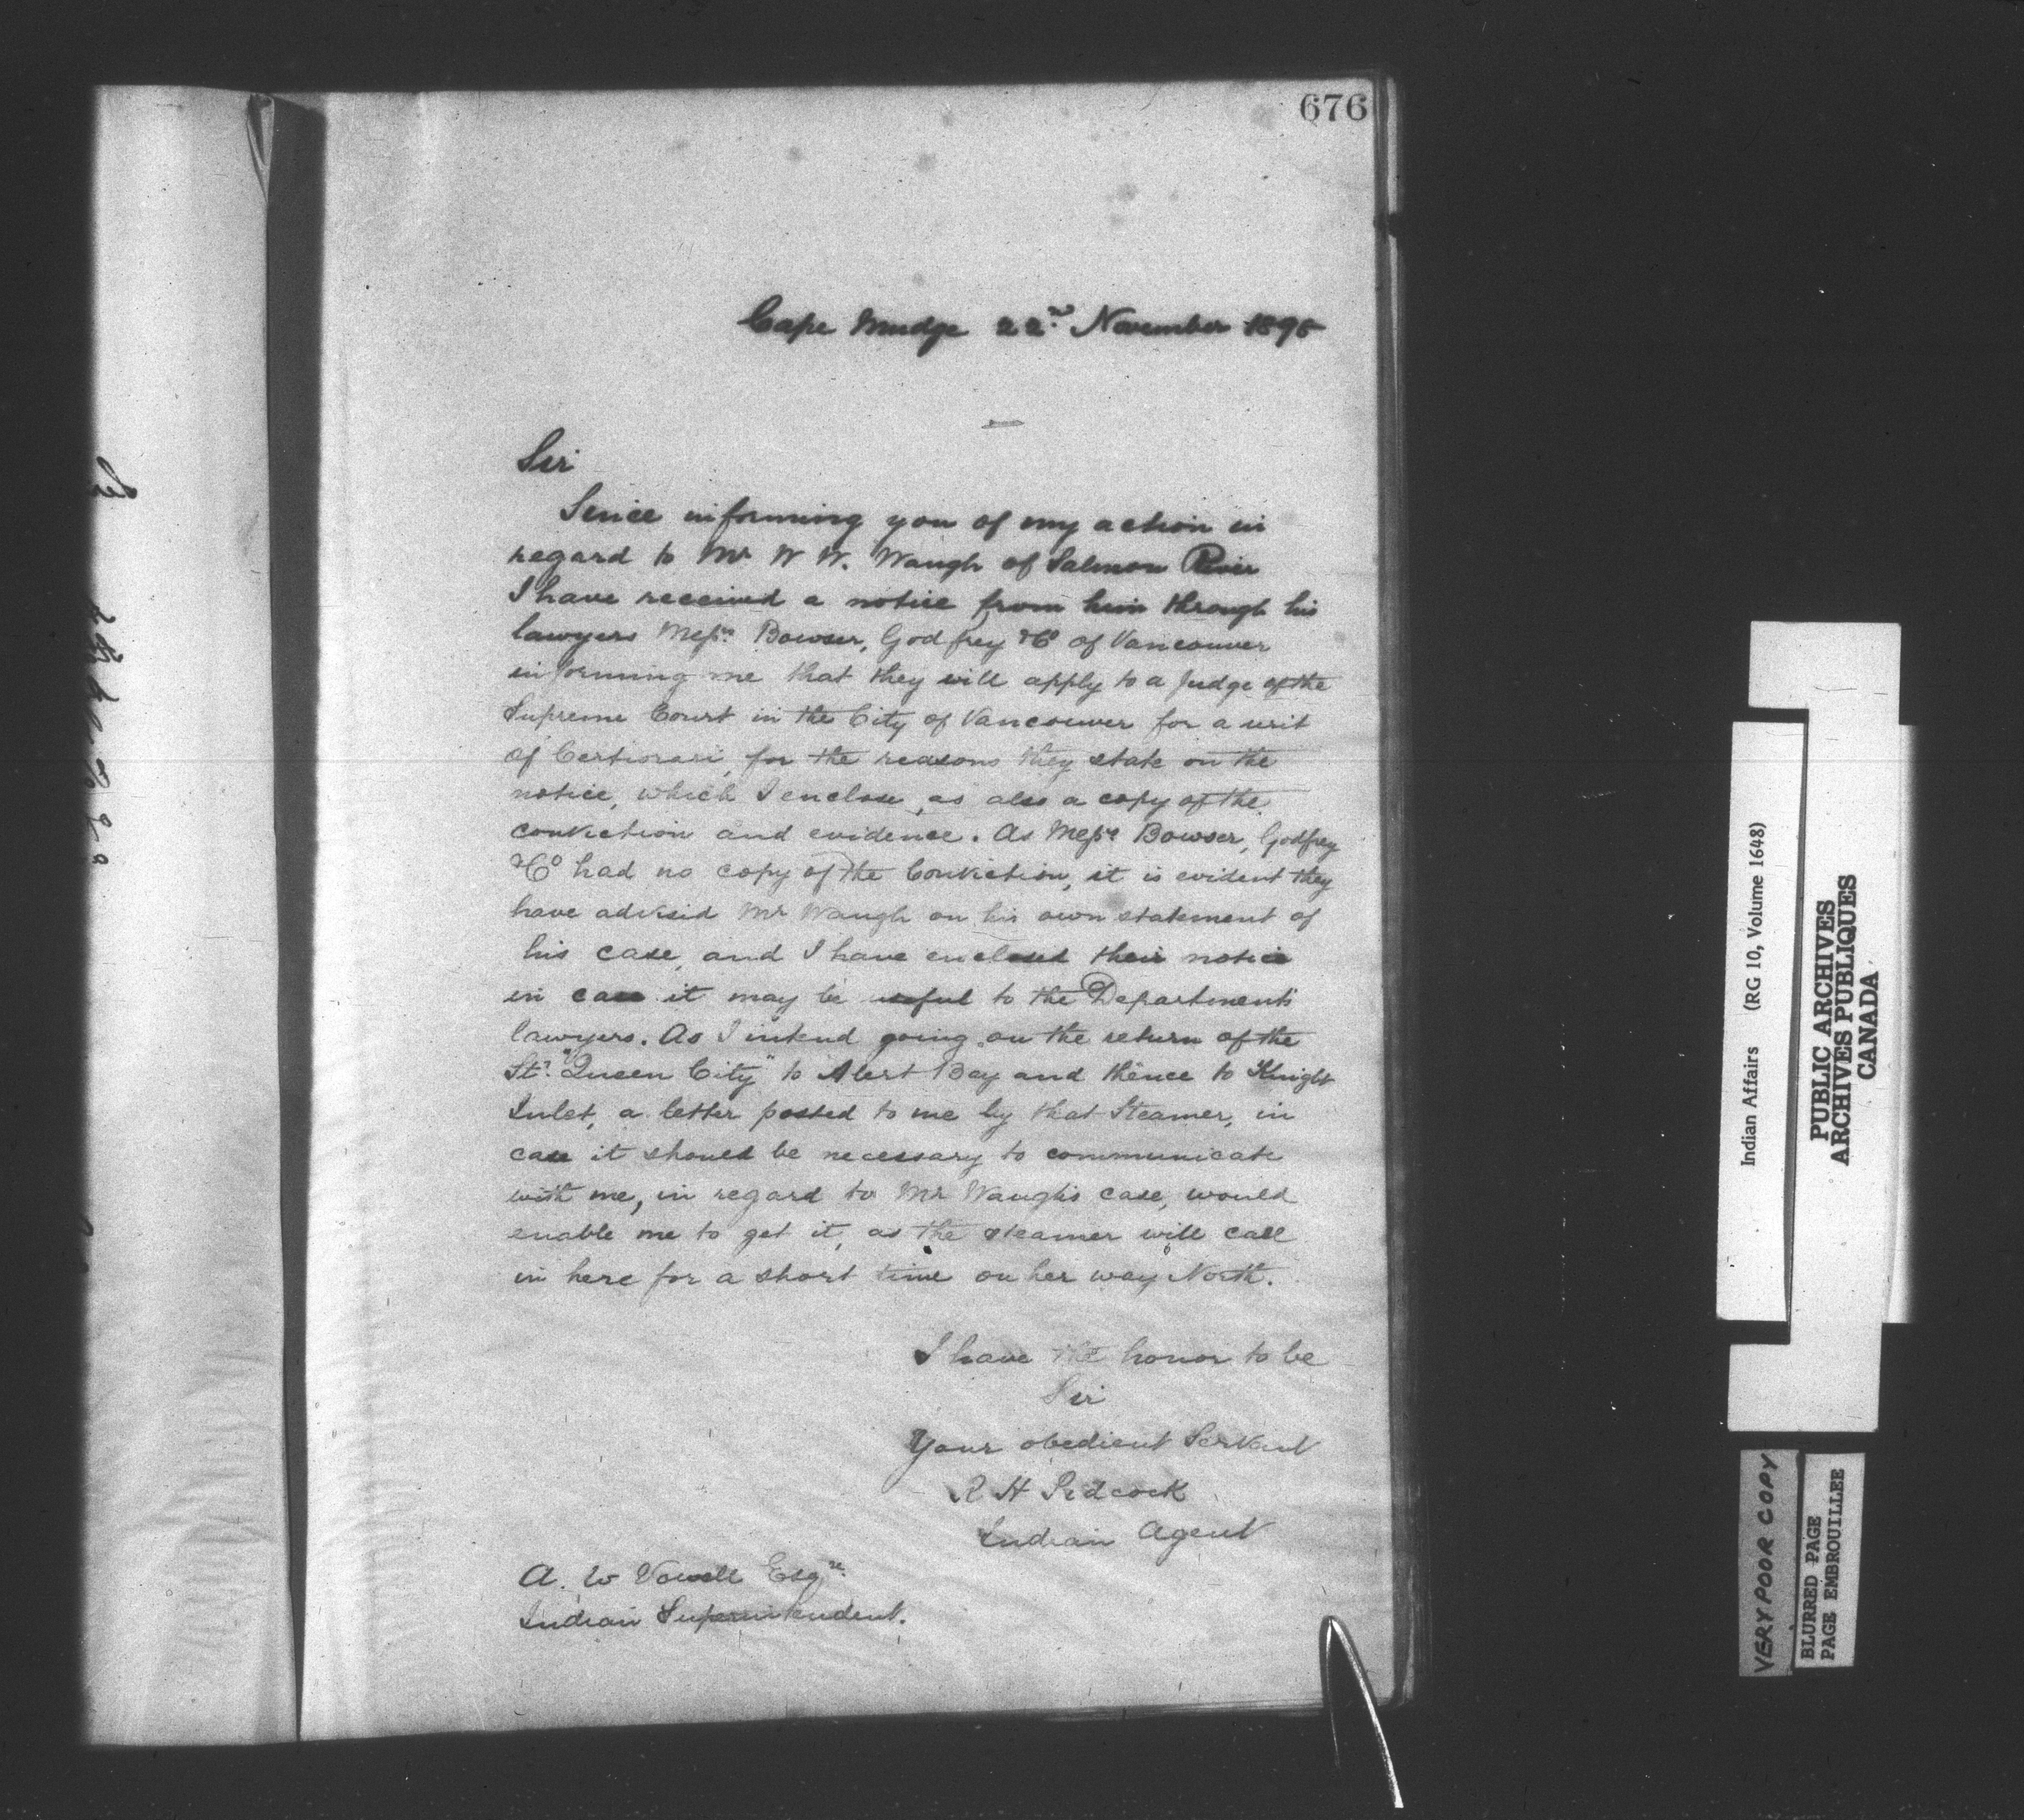 676
Cape Mudge 22nd November 1898
Sir
Since informing you of my action in
regard to Mr W W. Waugh of Salmon River
I have received a notice from him through his
lawyers Messrs Bowser, Godfrey & Co of Vancouver
informing me that they will apply to a Judge of the
Supreme Court in the City of Vancouver for a writ
of Certiorari, for the reasons they state on the
notice, which I enclose, as also a copy of the
conviction and evidence. As Messrs Bowser, Godfrey
& Co had no copy of the Conviction, it is evident they
have advised Mr Waugh on his own statement of
his case, and I have enclosed their notice
in case it may be useful to the Departments
lawyers. As I intend going on the return of the
Str. "Queen City" to Alert Bay and thence to Knight
Inlet, a letter posted to me by that Steamer, in
case it should be necessary to communicate
with me, in regard to Mr Waugh's case, would
enable me to get it, as the steamer will call
in here for a short time on her way North.
I have the honor to be
Sir
Your obedient Servant
R H Pidcock
Indian Agent
A. W Vowell Esqre.
Indian Superintendent.
Indian Affairs (RG 10, Volume 1648)
PUBLIC ARCHIVES
ARCHIVES PUBLIQUES
CANADA
VERY POOR COPY
BLURRED PAGE
PAGE EMBROUILLEE